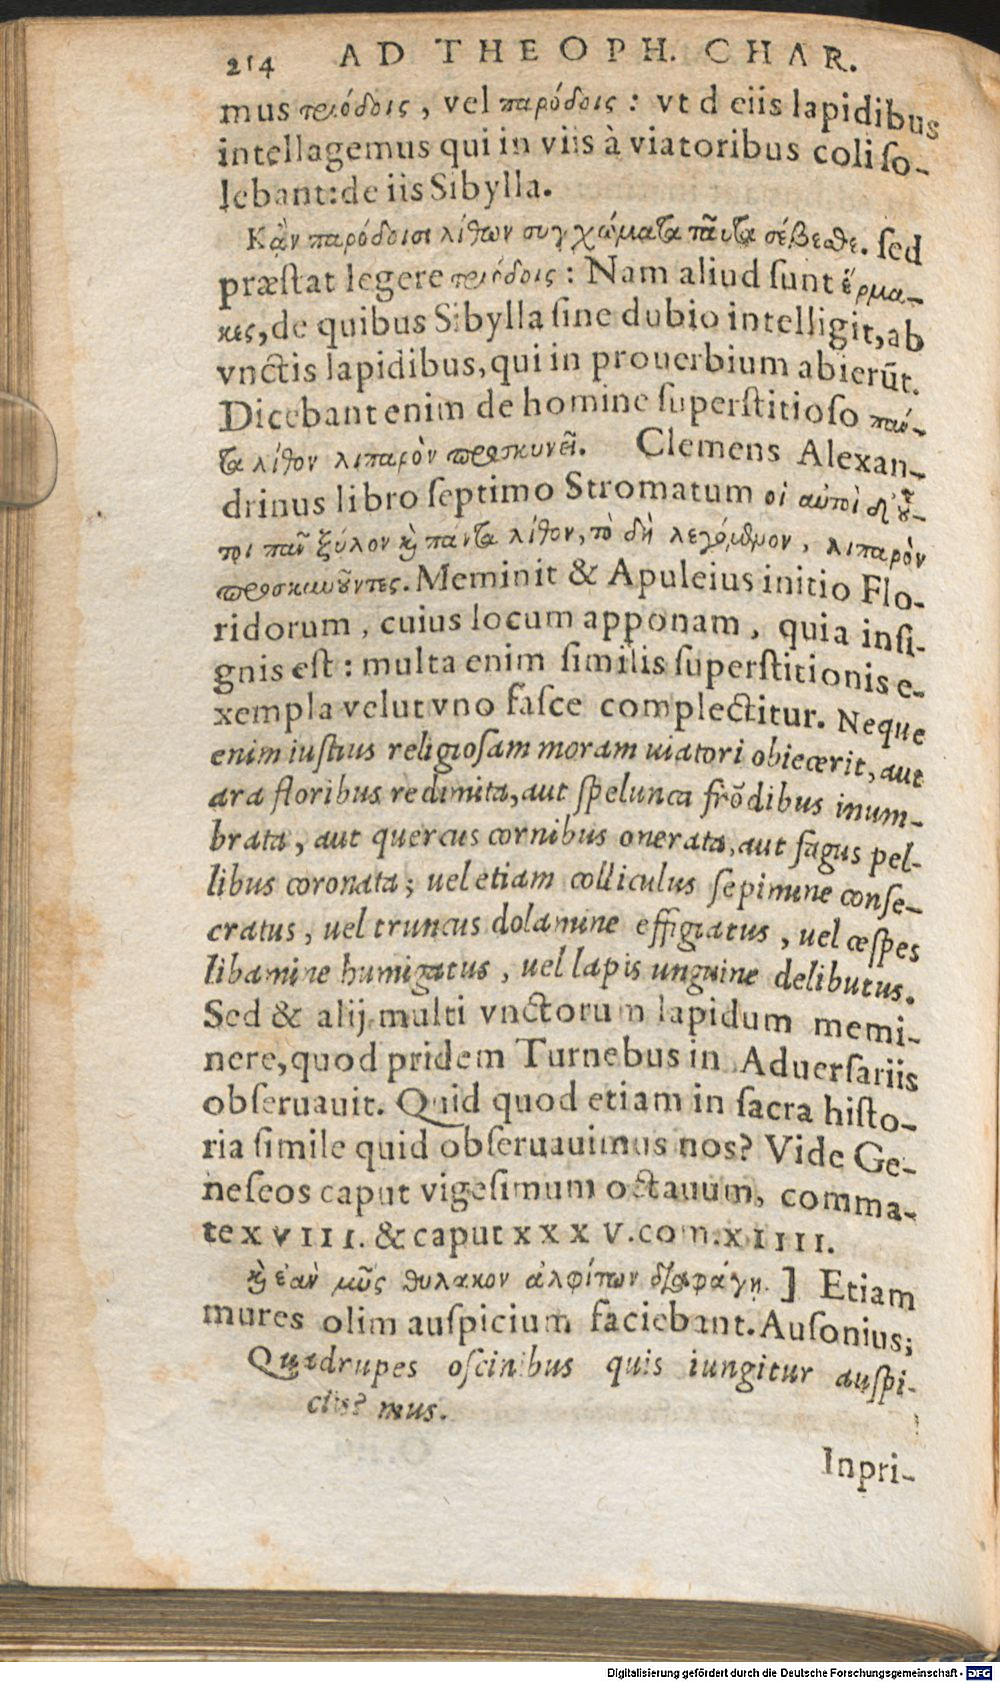 214 AD THEOPH. CHAR.
mus τριόδοις, vel παρόδοις: vt d eiis lapidibus
intellagemus qui in viis à viatoribus coli ſo-
lebant:de iis Sibylla.
Κἂν παρόδοισι λίθων συγχώματα ταῦτα σέβεσθε. ſed
præſtat legere τριόδοις: Nam aliud ſunt ἕρμα-
κες,de quibus Sibylla ſine dubio intelligit,ab
vnctis lapidibus,qui in prouerbium abierūt.
Dicebant enim de homine ſuperſtitioſo πάν-
τα λίθον λιπαρὸν προσκυνεῖ. Clemens Alexan-
drinus libro ſeptimo Stromatum οἱ αὐτοὶ δ' οὗ-
τοι πᾶν ξύλον καὶ πάντα λίθον, τὸ δὴ λεγόμενον, λιπαρὸν
προσκυνοῦντες. Meminit & Apuleius initio Flo-
ridorum, cuius locum apponam, quia inſi-
gnis eſt: multa enim ſimilis ſuperſtitionis e-
xempla velut vno faſce complectitur. Neque
enim iuſtius religioſam moram uiatori obiecerit, aut
ara floribus redimita, aut ſpelunca frōdibus inum-
brata, aut quercus cornibus onerata, aut fagus pel-
libus coronata; uel etiam colliculus ſepimine conſe-
cratus, uel truncus dolamine effigiatus, uel ceſpes
libamine humigatus, uel lapis unguine delibutus.
Sed & alij multi vnctorum lapidum memi-
nere,quod pridem Turnebus in Aduerſariis
obſeruauit. Quid quod etiam in ſacra hiſto-
ria ſimile quid obſeruauimus nos? Vide Ge-
neſeos caput vigeſimum octauum, comma-
te XVIII. & caput XXXV. com. XIIII.
καὶ ἐὰν μῦς θύλακον ἀλφίτων διαφάγῃ. ] Etiam
mures olim auſpicium faciebant. Auſonius;
Quadrupes oſcinibus quis iungitur auſpi-
ciis? mus.
Inpri-
Digitalisierung gefördert durch die Deutsche Forschungsgemeinschaft - DFG